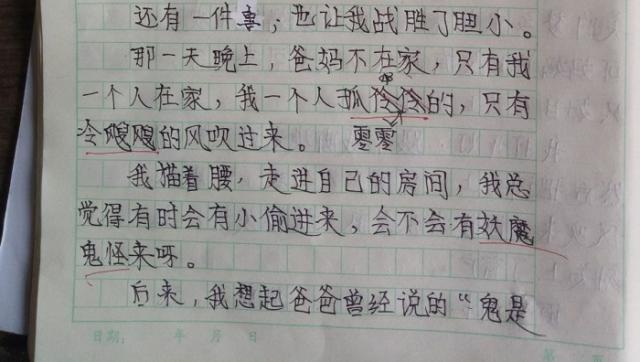 还有一件事；也让我战胜了胆小。
那一天晚上，爸妈不在家，只有我
一个人在家，我一个人孤伶伶的，只有
冷飕飕的风吹过来。 零零
我描着腰，走进自己的房间，我总
觉得有时会有小偷进来，会不会有妖魔
鬼怪来呀。
后来，我想起爸爸曾经说的“鬼是
日期： 年 月 日